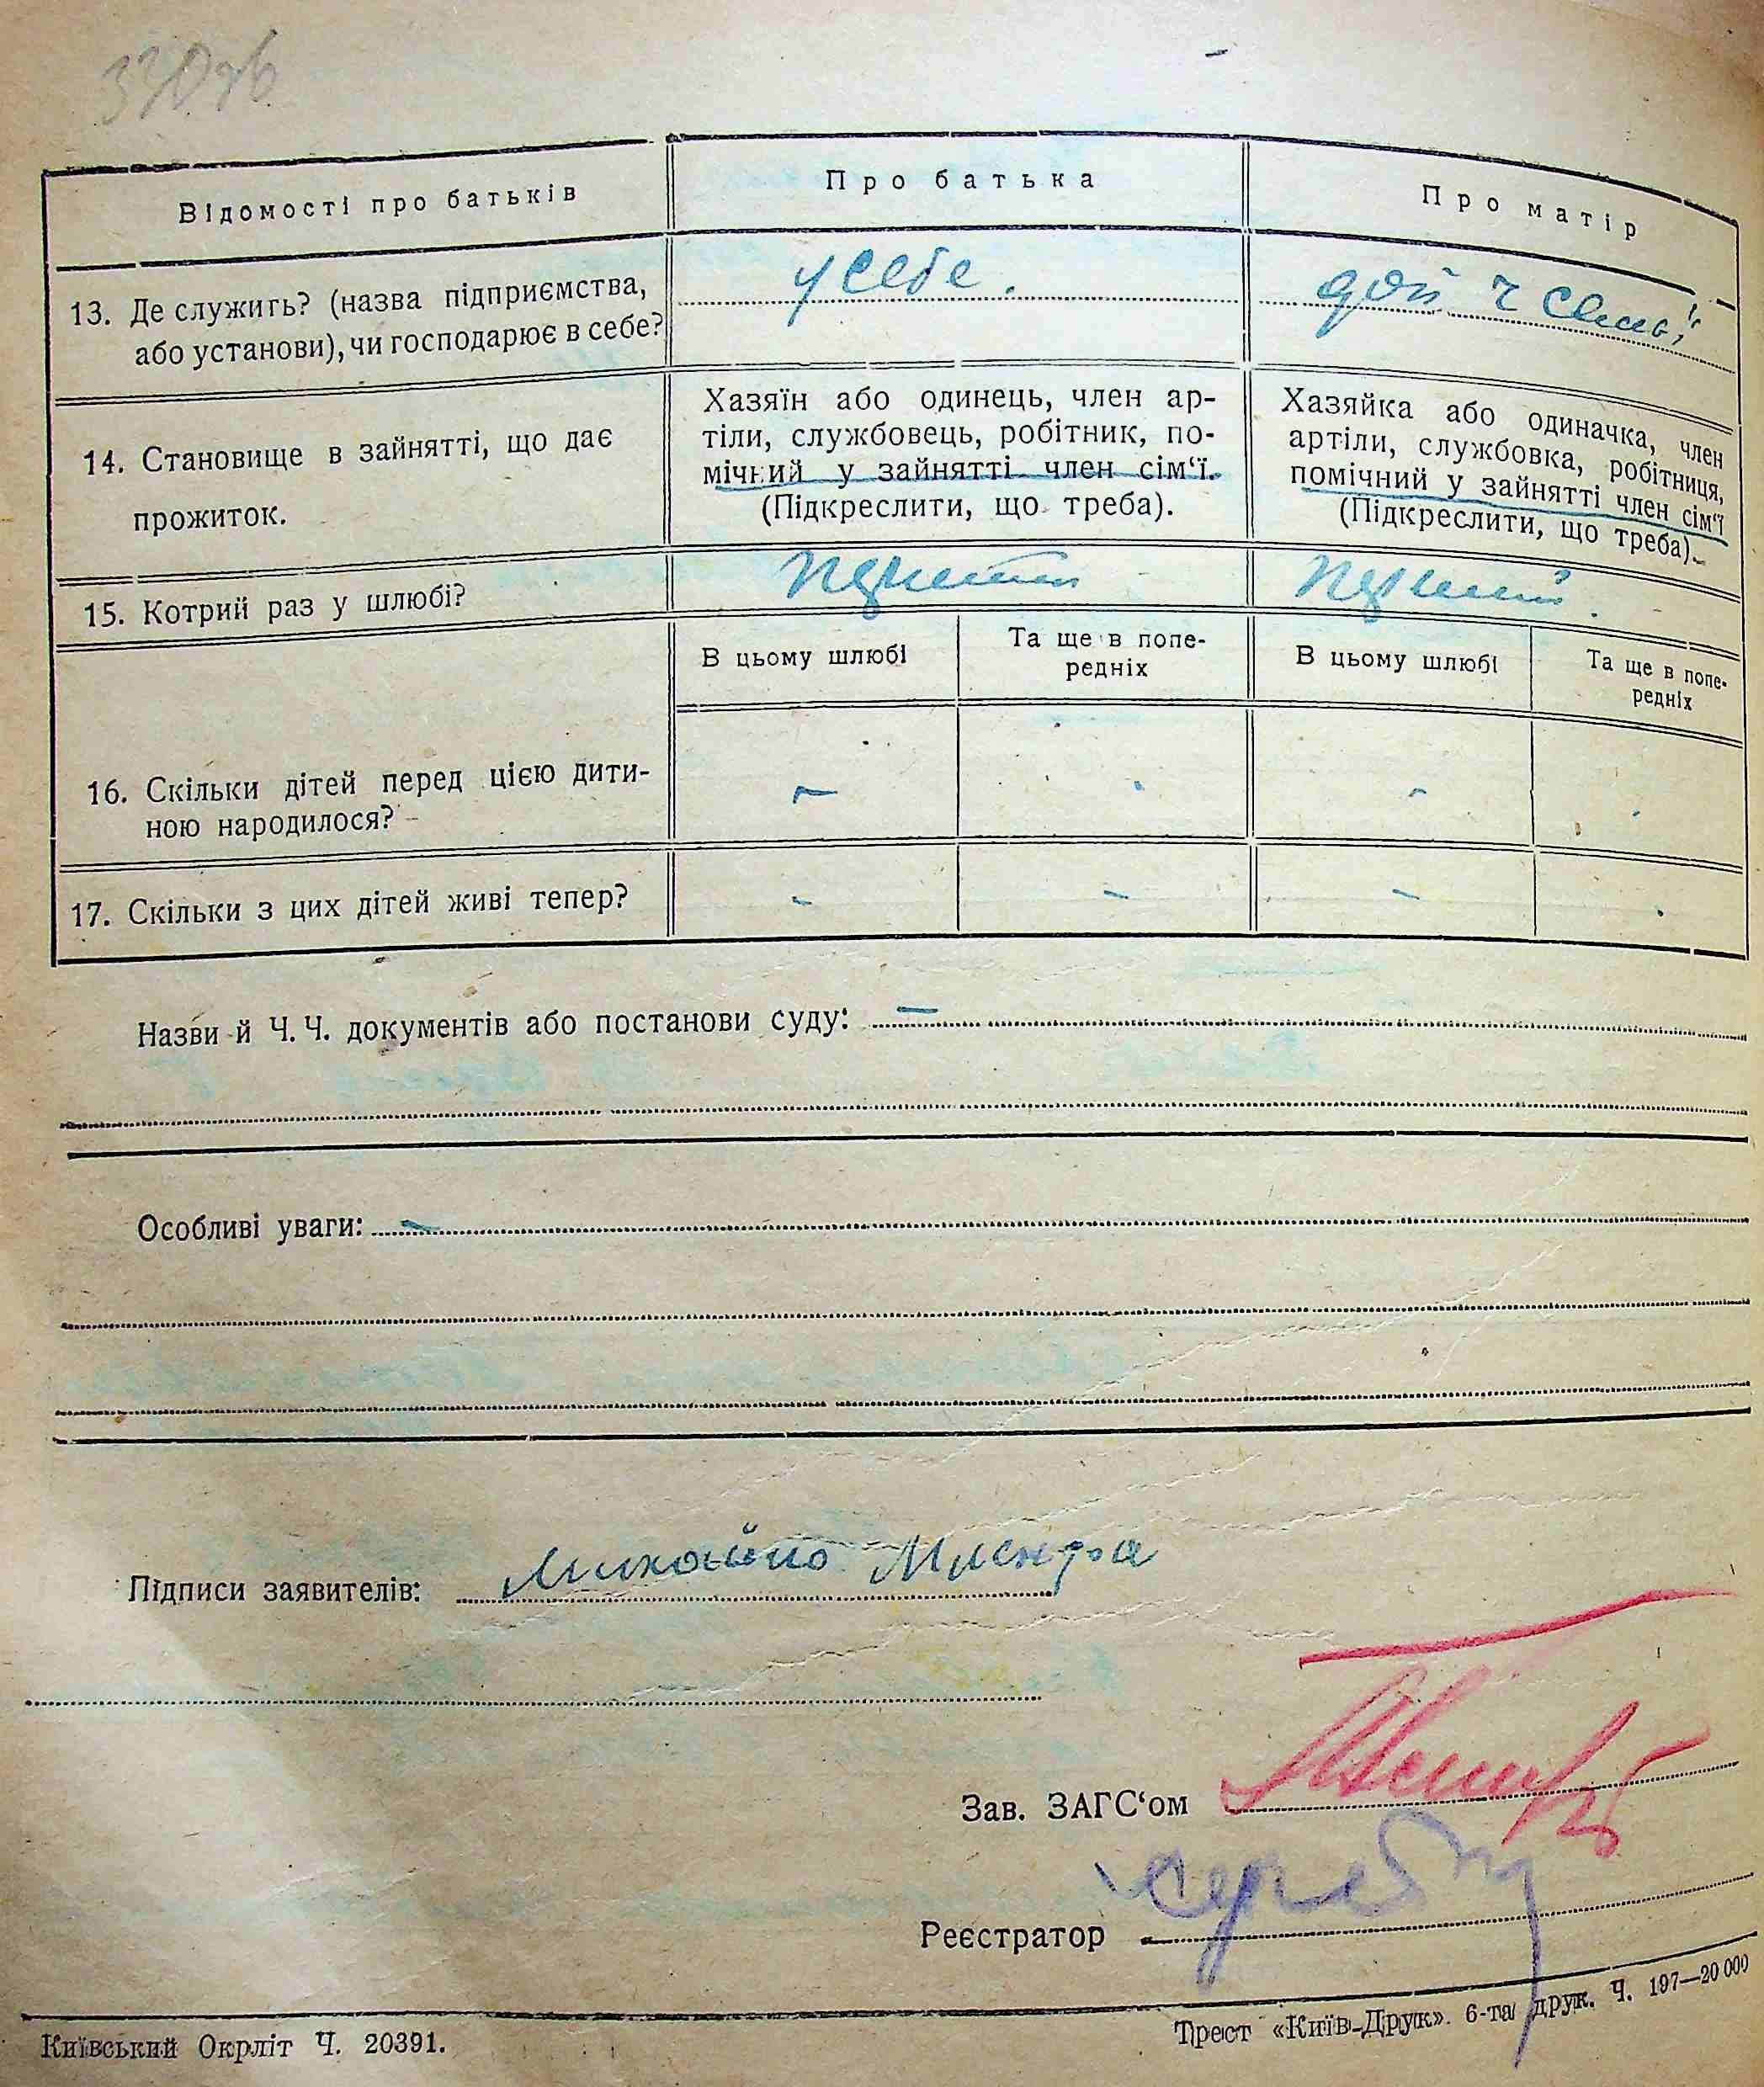 Відомості про батьків
Про батька
Про матір
13. Де служить? (назва підприємства,
або установи), чи господарює в себе?
у себе.
14. Становище в зайнятті, що дає
прожиток.
Хазяїн або одинець, член ар-
тіли, службовець, робітник, по-
мічний у зайнятті член сім‘ї.
(Підкреслити, що треба).
Хазяйка або одиначка, член
артіли, службовка, робітниця,
помічний у зайнятті член сім‘ї
(Підкреслити, що треба).
15. Котрий раз у шлюбі?
В цьому шлюбі
Та ще в попе-
редніх
В цьому шлюбі
Та ще в попе-
редніх
16. Скільки дітей перед цією дити-
ною народилося?
–
–
17. Скільки з цих дітей живі тепер?
– – –
Назви й Ч. Ч. документів або постанови суду: –
Особливі уваги: –
Підписи заявителів: Михайло
Зав. ЗАГС‘ом
Реєстратор
Київський Окрліт Ч. 20391.
Трест «Київ-Друк». 6-та друк. Ч. 197—20 000